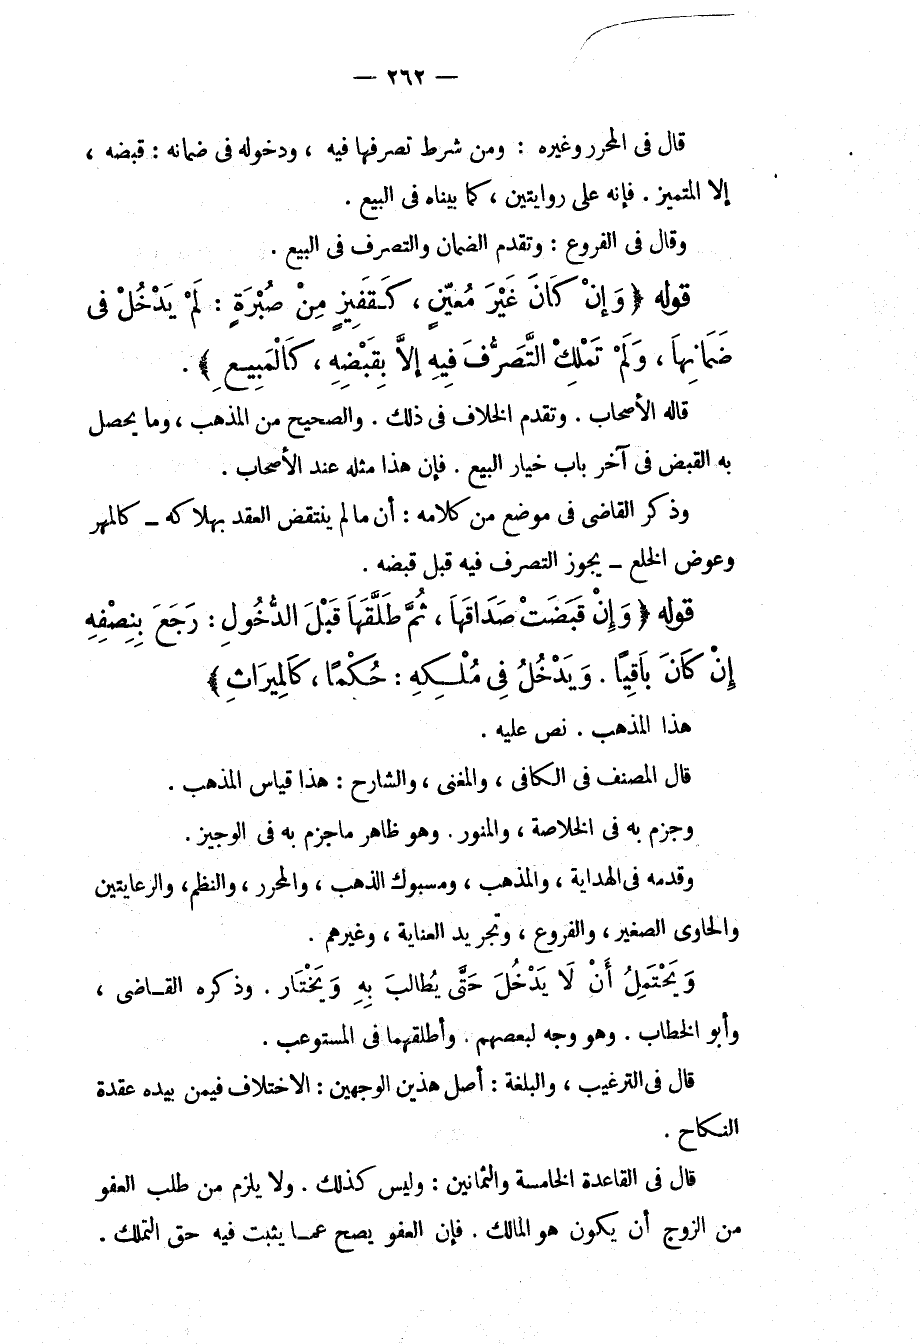 — ٢٦٢ —
قال فى المحرر وغيره : ومن شرط تصرفها فيه ، ودخوله فى ضمانه : قبضه ،
إلا المتميز . فإنه على روايتين ، كما بيناه فى البيع .
وقال فى الفروع : وتقدم الضمان والتصرف فى البيع .
قوله ﴿ وَإِنْ كَانَ غَيْرَ مُعيّنٍ ، كَـقَفِيزٍ مِنْ صُبْرَةٍ : لَمْ يَدْخُلْ فى
ضَمَانِهاَ ، وَلَمْ تَمْلِكْ التَّصَرُّفَ فِيهِ إلاَّ بِقَبْضِهِ ، كَالْمَبِيعِ ﴾ .
قاله الأصحاب . وتقدم الخلاف فى ذلك . والصحيح من المذهب ، وما يحصل
به القبض فى آخر باب خيار البيع . فإن هذا مثله عند الأصحاب .
وذكر القاضى فى موضع من كلامه : أن مالم ينتقض العقد بهلاكه ــ كالمهر
وعوض الخلع ــ يجوز التصرف فيه قبل قبضه .
قوله ﴿ وَإِنْ قَبَضَتْ صَدَاقَهاَ ، ثُمَّ طَلَّقَهاَ قَبْلَ الدُّخُولِ : رَجَعَ بِنِصْفِهِ
إِنْ كَانَ بَاقِيًا . وَيَدْخُلُ فِى مُلْـكِهِ : حُكْمًا ، كَالمِيرَاثِ ﴾
هذا المذهب . نص عليه .
قال المصنف فى الكافى ، والمغنى ، والشارح : هذا قياس المذهب .
وجزم به فى الخلاصة ، والمنور . وهو ظاهر ماجزم به فى الوجيز .
وقدمه فى الهداية ، والمذهب ، ومسبوك الذهب ، والمحرر ، والنظم ، والرعايتين
والحاوى الصغير ، والفروع ، وتجريد العناية ، وغيرهم .
وَيَحْتَمِلُ أَنْ لَا يَدْخُلَ حَتَّى يُطَالبَ بِهِ وَيَخْتَار . وذكره القـاضى ،
وأبو الخطاب . وهو وجه لبعضهم . وأطلقهما فى المستوعب .
قال فى الترغيب ، والبلغة : أصل هذين الوجهين : الاختلاف فيمن بيده عقدة
النكاح .
قال فى القاعدة الخامسة والثمانين : وليس كذلك . ولا يلزم من طلب العفو
من الزوج أن يكون هو المالك . فإن العفو يصح عمـا يثبت فيه حق التملك .